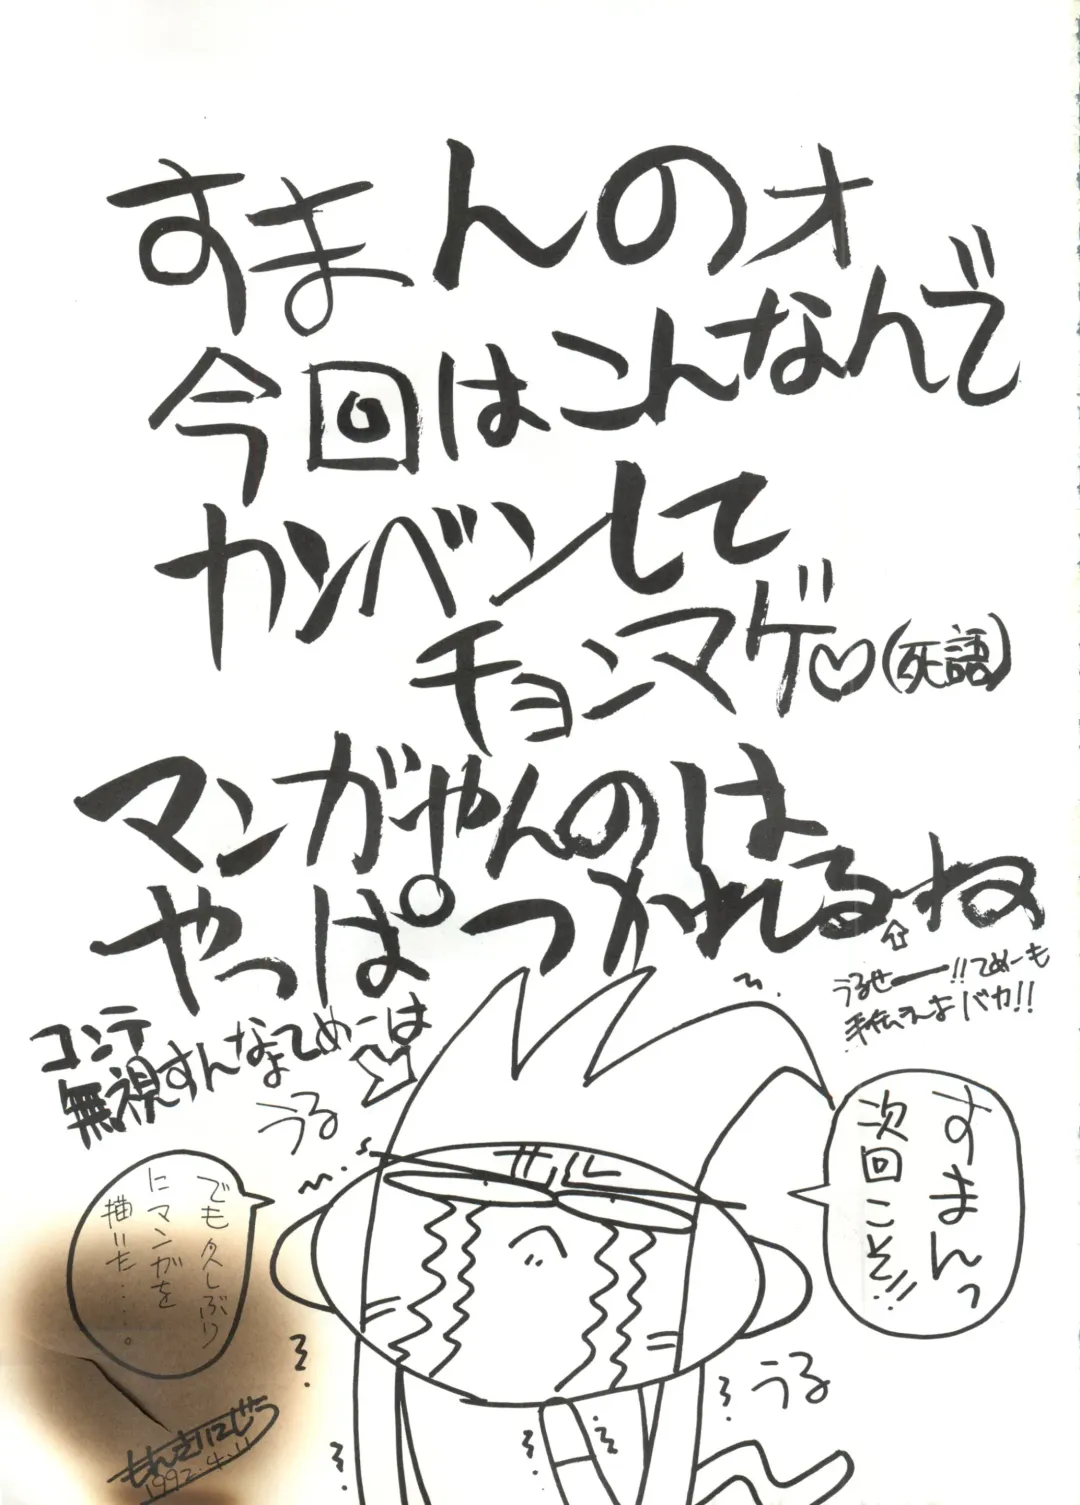 すまんのォ
今回はこんなんで
カンベンして
チョンマゲ♡(死語)
マンガやんのは
やっぱつかれるね
⇧
うるせー!!てめーも
手伝えよバカ!!
コンテ
無視すんなよてめーは
うる
サル
すまんっ
次回こそ!!
でも久しぶり
にマンガを
描いた・・・・。
うる
もんきにじう
1992.4.11